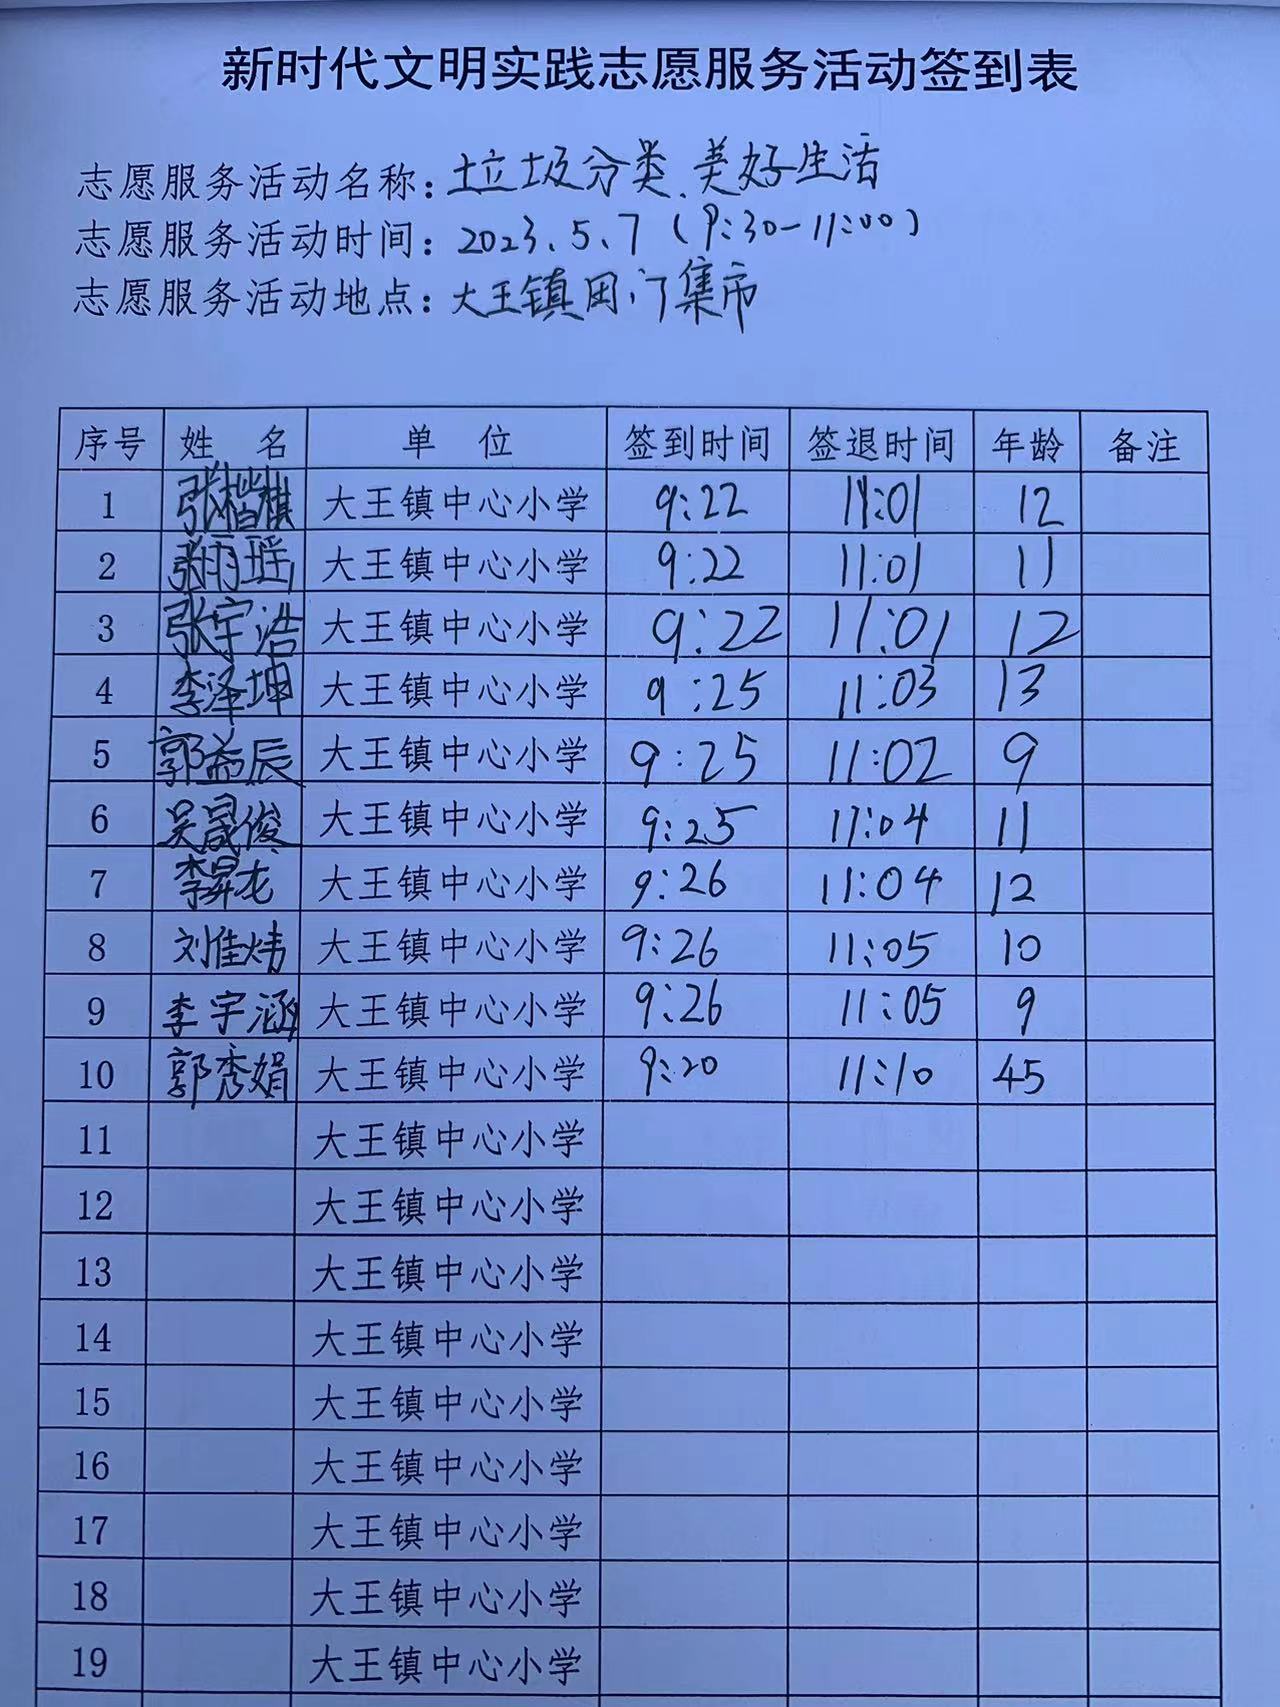 新时代文明实践志愿服务活动签到表
志愿服务活动名称：垃圾分类、美好生活
志愿服务活动时间：2023.5.7（9:30-11:00）
志愿服务活动地点：大王镇田门集市
序号 姓 名 单 位 签到时间 签退时间 年龄 备注
1 张楷棋 大王镇中心小学 9:22 11:01 12
2 张雨瑶 大王镇中心小学 9:22 11:01 11
3 张宇浩 大王镇中心小学 9:22 11:01 12
4 李泽坤 大王镇中心小学 9:25 11:03 13
5 郭益辰 大王镇中心小学 9:25 11:02 9
6 吴晟俊 大王镇中心小学 9:25 11:04 11
7 李昇龙 大王镇中心小学 9:26 11:04 12
8 刘佳炜 大王镇中心小学 9:26 11:05 10
9 李宇涵 大王镇中心小学 9:26 11:05 9
10 郭秀娟 大王镇中心小学 9:20 11:10 45
11 大王镇中心小学
12 大王镇中心小学
13 大王镇中心小学
14 大王镇中心小学
15 大王镇中心小学
16 大王镇中心小学
17 大王镇中心小学
18 大王镇中心小学
19 大王镇中心小学